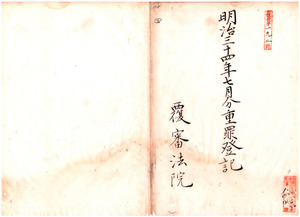 明治三十四年七月分重罪登記
覆審法院